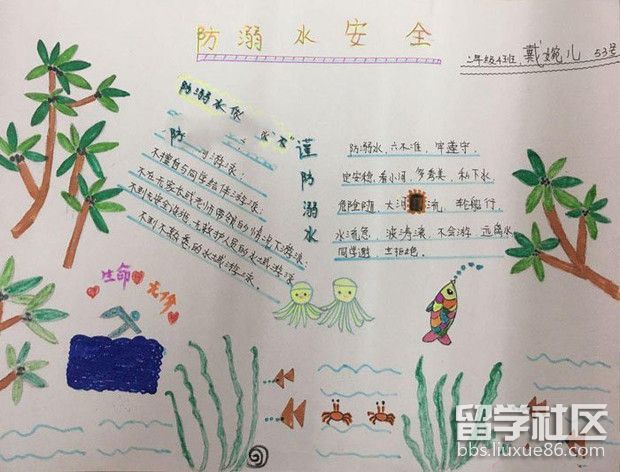 防溺水安全
二年级4班 戴婉儿 53号
防溺水保
不擅自与同学结伴游泳;
不在无家长或老师带领的情况下游泳
不到无安全设施、无救护人员的水域游泳
不到不熟悉的水域游泳。
谨防溺水
防溺水,六不准,牢遵守,
私下水,
危险随,大河 流,轮船行,
水流急,波涛滚,不会游,远离水
同学邀,去拒绝。
生命
无价
留学社区
bbs.liuxue86.com